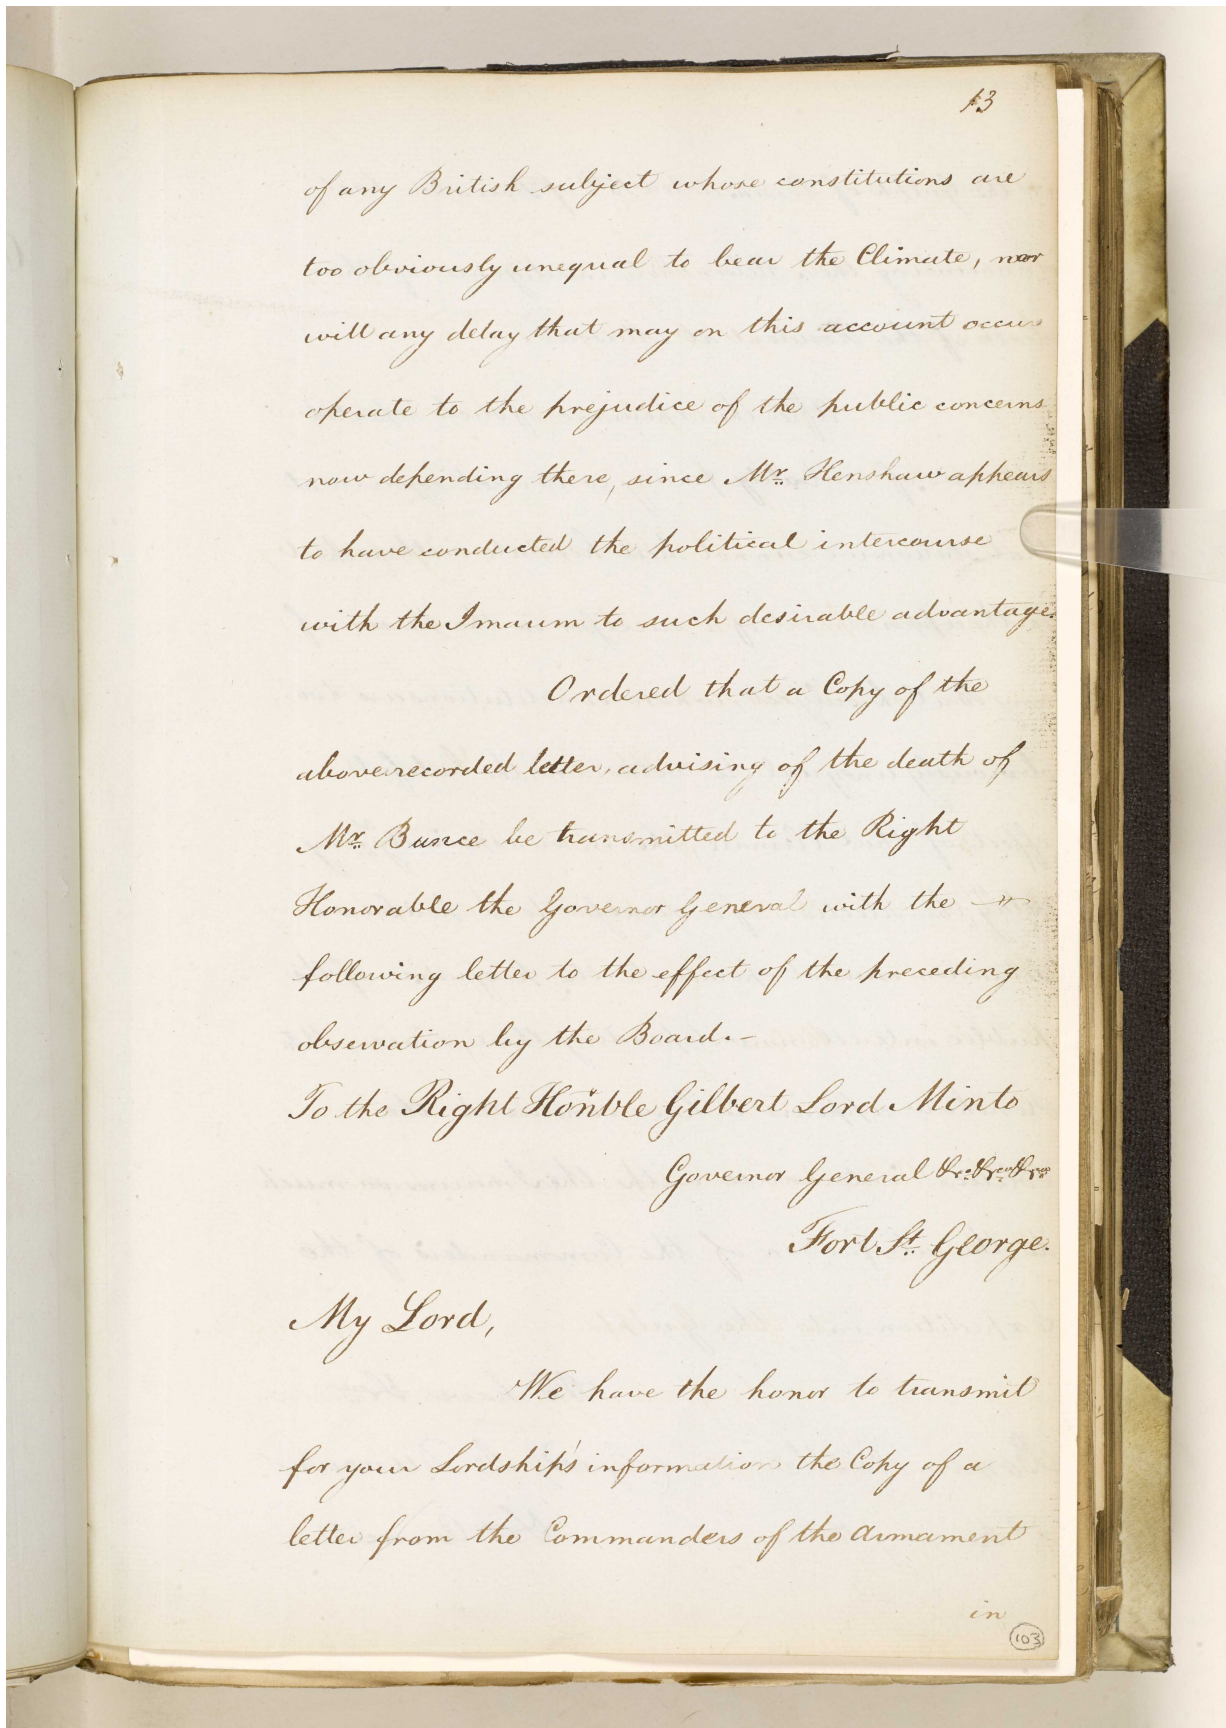 13
of any British subject whose constitutions are
too obviously unequal to bear the Climate, nor
will any delay that may on this account occur
operate to the prejudice of the public concerns
now depending there, since Mr. Henshaw appears
to have conducted the political intercourse
with the Imaum to such desirable advantage.
Ordered that a Copy of the
above recorded letter, advising of the death of
Mr. Bunce be transmitted to the Right
Honorable the Governor General with the
following letter to the effect of the preceding
observation by the Board.-
To the Right Honble Gilbert Lord Minto
Governor General &ca. &ca. &ca.
Fort St. George.
My Lord,
We have the honor to transmit
for your Lordship's information the Copy of a
letter from the Commanders of the Armament
in
103